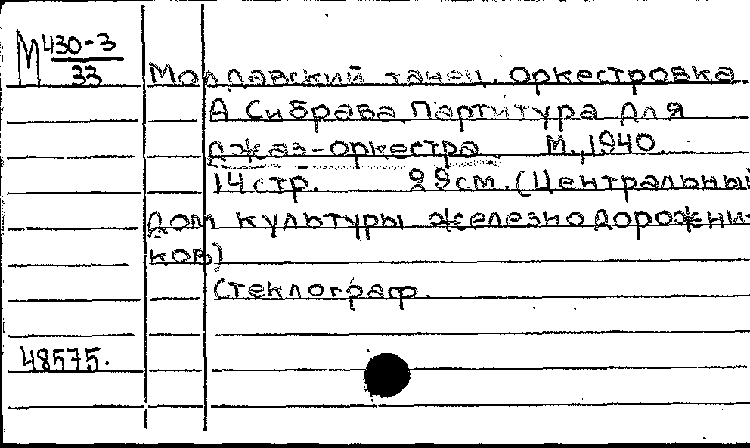 М 430-3
33
Молдавский танец. Оркестровка
А Сибрава Партитура для
джаз-оркестра М., 1940.
14 стр. 29 см. (Центральный
дом культуры железнодорожни-
ков)
Стеклограф.
48575.